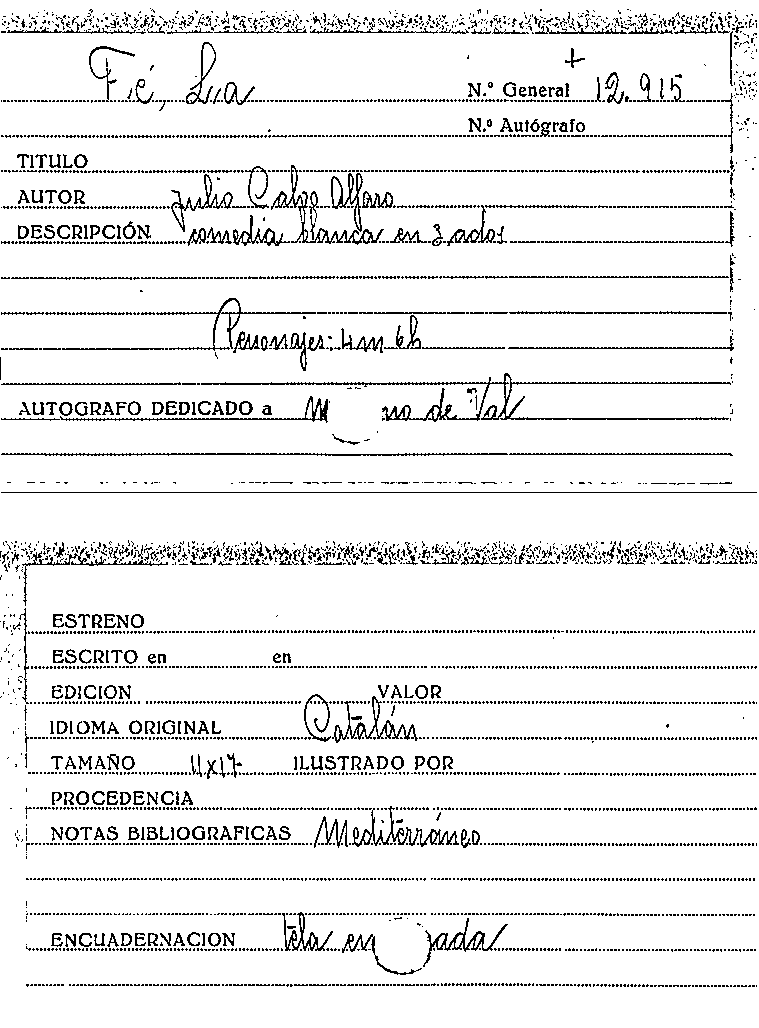 Fé, La
+
N.º General 12.915
N.º Autógrafo
TITULO
AUTOR Julio Calvo Alfaro
DESCRIPCIÓN comedia blanca en 3 actos
Personajes: 4m 6h
AUTOGRAFO DEDICADO a M no de Val
ESTRENO
ESCRITO en en
EDICION VALOR
IDIOMA ORIGINAL Catalán
TAMAÑO 11x17 ILUSTRADO POR
PROCEDENCIA
NOTAS BIBLIOGRAFICAS Mediterráneo
ENCUADERNACION tela en ada